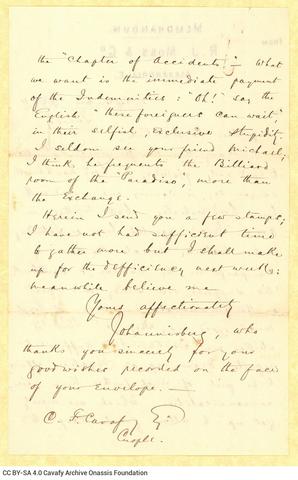 the "Chapter of Accidents" - What
we want is the immediate payment
of the Indemnities: "Oh!" say the
English "these foreigners can wait,"
in their selfish, exclusive stupidity.
I seldom see your friend Michael;
I think he frequents the Billiard
room of the "Paradiso", more than
the Exchange.
Herein I send you a few stamps;
I have not had sufficient time
to gather more but I shall make
up for the defficiency next week:
meanwhile believe me
Yours affectionately
Johannisberg, who
thanks you sincerely for your
good wishes recorded on the face
of your Envelope. —
C. F. Cavafy Eq:
Cnople.
MEMORANDUM
FROM
CC BY-SA 4.0 Cavafy Archive Onassis Foundation